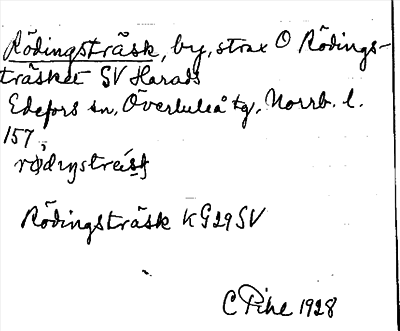 Rödingsträsk, by, strax O Rödings-
träsket SV Harads
Edefors sn, Överluleå tg, Norrb. l.
157,
Rödingsträsk KG29SV
C Pihl 1928